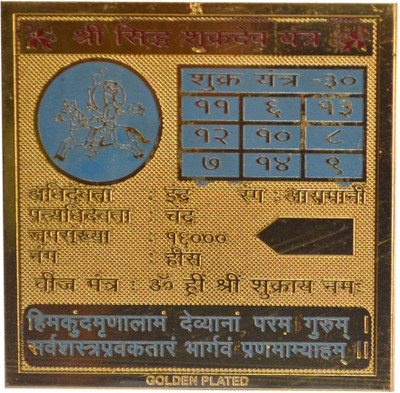 श्री सिद्ध शुक्रदेव यंत्र
शुक्र यंत्र -३०
११ ६ १३
१२ १० ८
७ १४ ९
अधिदेवता : इंद्र रंग : आसमानी
प्रत्यधिदेवता : चंद्र
जपसंख्या : १६०००
नग : हीरा
वीज मंत्र : ॐ ह्रीं श्रीं शुक्राय नमः
हिमकुंदमृणालामं देव्यानां परम गुरूम् ।
सर्वशस्त्रप्रवकतारं भार्गवं प्रणमाम्याहम् ||
GOLDEN PLATED